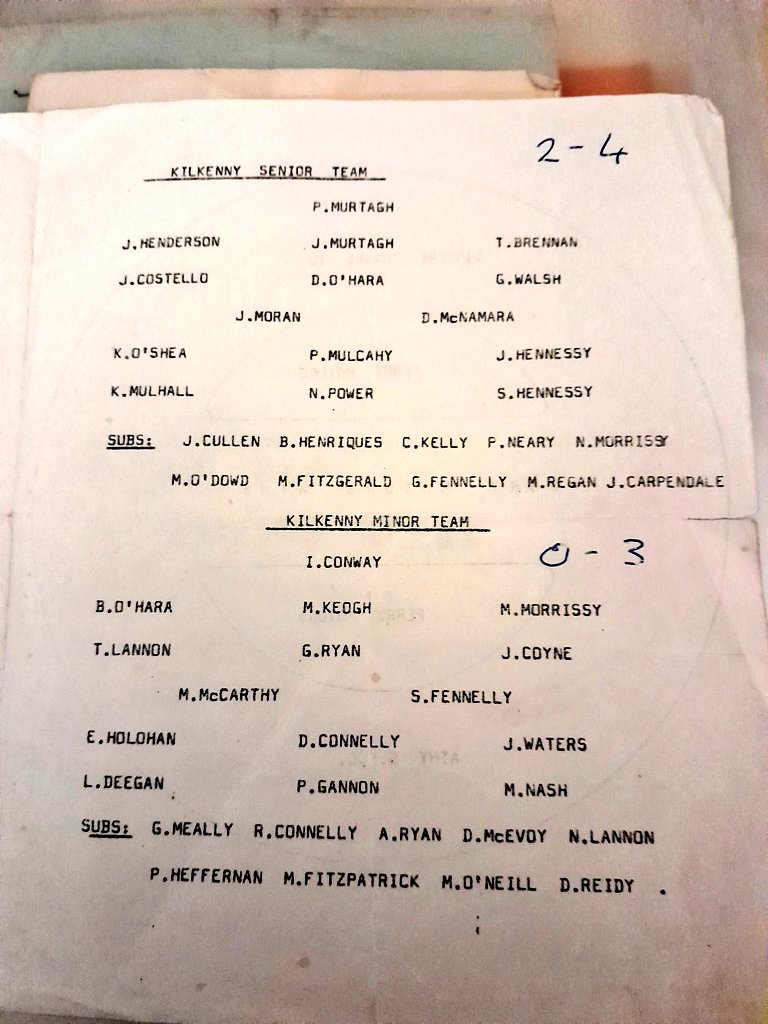 2-4
KILKENNY SENIOR TEAM
P.MURTAGH
J.HENDERSON J.MURTAGH T.BRENNAN
J.COSTELLO D.O'HARA G.WALSH
J.MORAN D.McNAMARA
K.O'SHEA P.MULCAHY J.HENNESSY
K.MULHALL N.POWER S.HENNESSY
SUBS: J.CULLEN B.HENRIQUES C.KELLY P.NEARY N.MORRISSY
M.O'DOWD M.FITZGERALD G.FENNELLY M.REGAN J.CARPENDALE
KILKENNY MINOR TEAM
0-3
I.CONWAY
B.O'HARA M.KEOGH M.MORRISSY
T.LANNON G.RYAN J.COYNE
M.McCARTHY S.FENNELLY
E.HOLOHAN D.CONNELLY J.WATERS
L.DEEGAN P.GANNON M.NASH
SUBS: G.MEALLY R.CONNELLY A.RYAN D.McEVOY N.LANNON
P.HEFFERNAN M.FITZPATRICK M.O'NEILL D.REIDY .